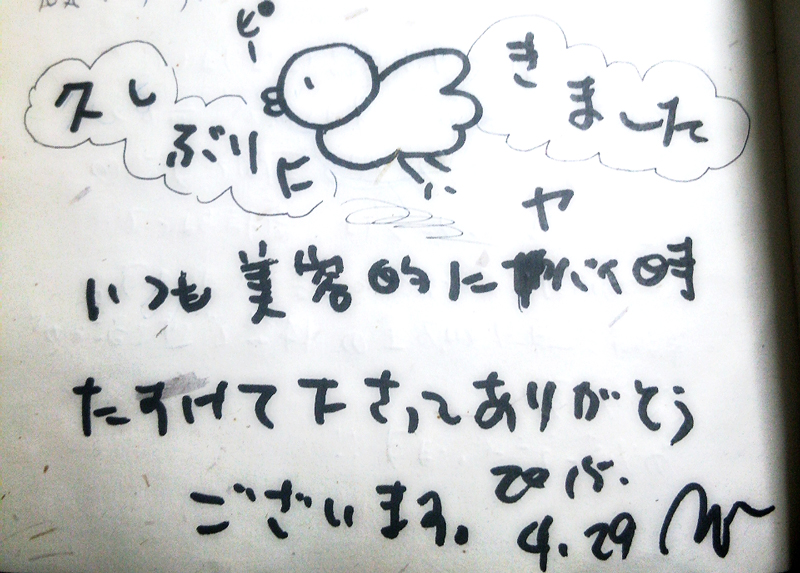 ピー
久し
ぶりに
きました
いつも美容的にヤバイ時
たすけて下さってありがとう
ございます。
2015.
4.29